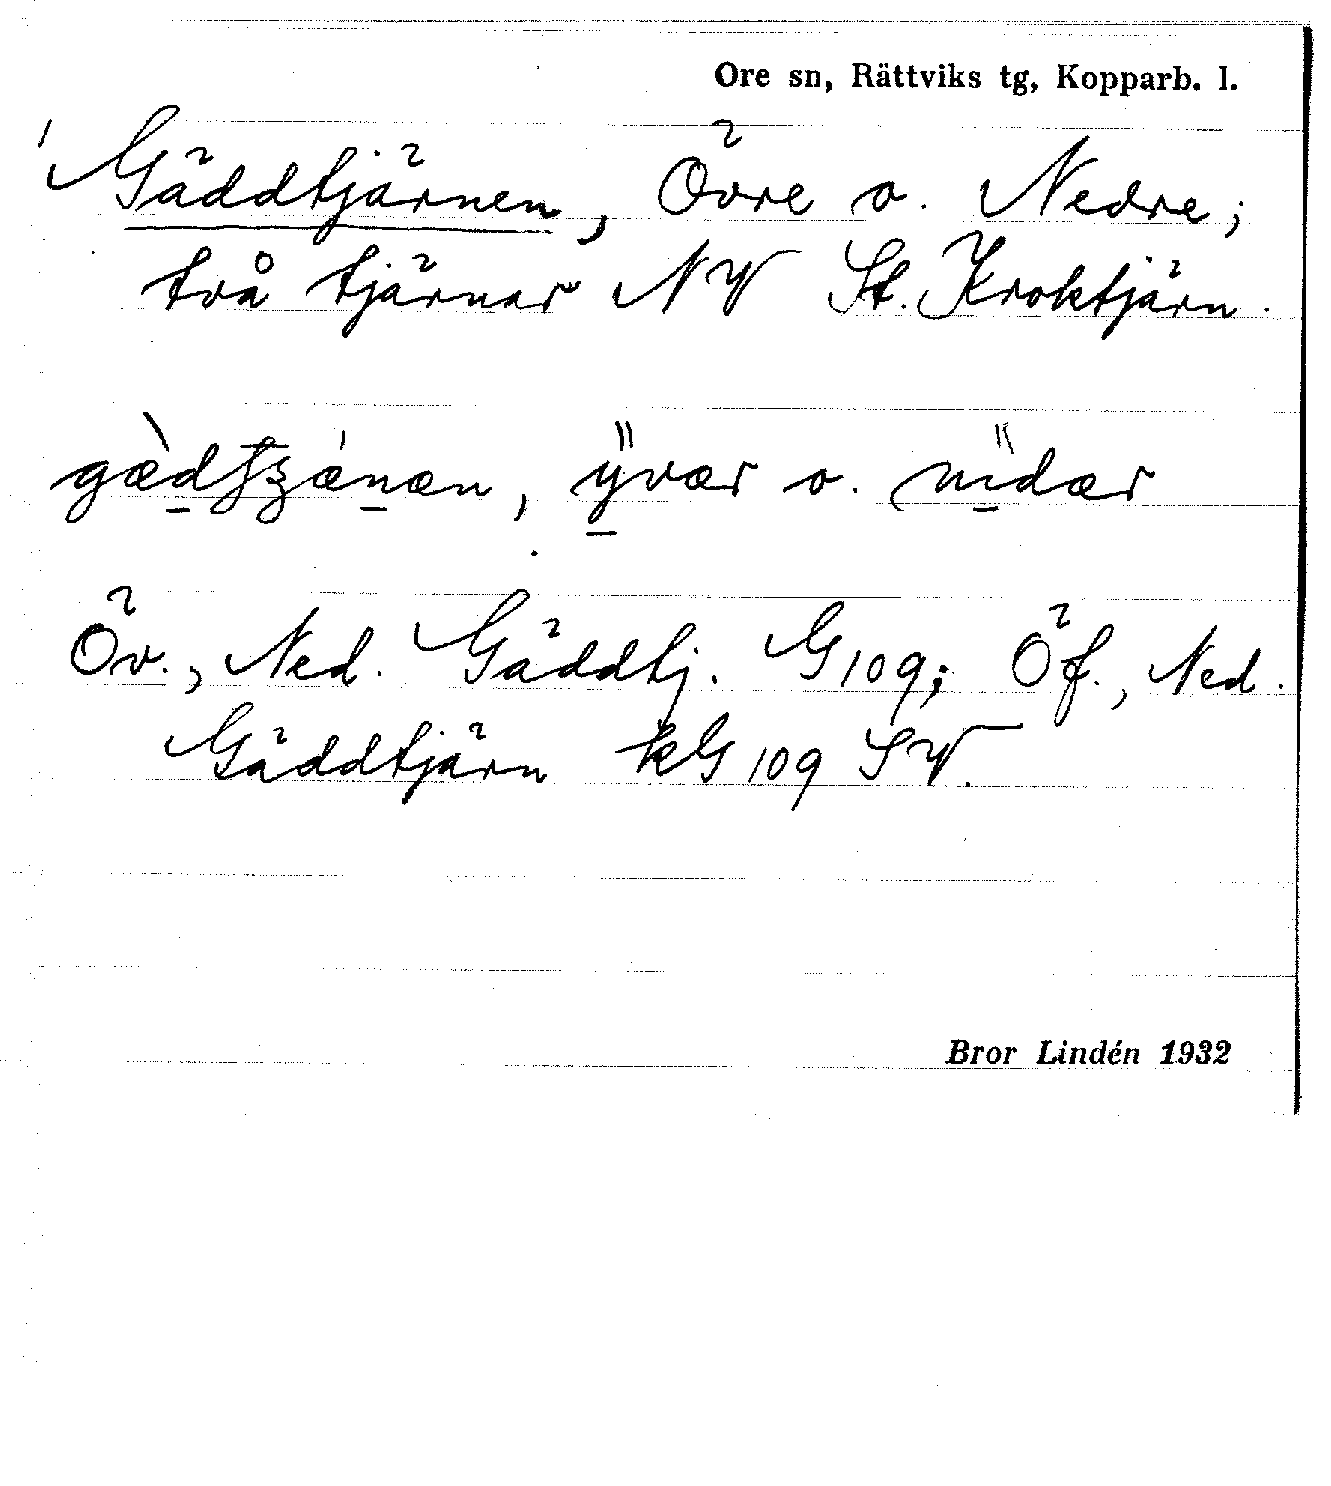 Ore sn, Rättviks tg, Kopparb. l.
Gäddtjärnen, Övre o. Nedre;
två tjärnar NV St. Kroktjärn.
o.
Öv., Ned. Gäddtj. G109; Öf., Ned.
Gäddtjärn kG 109 SV.
Bror Lindén 1932